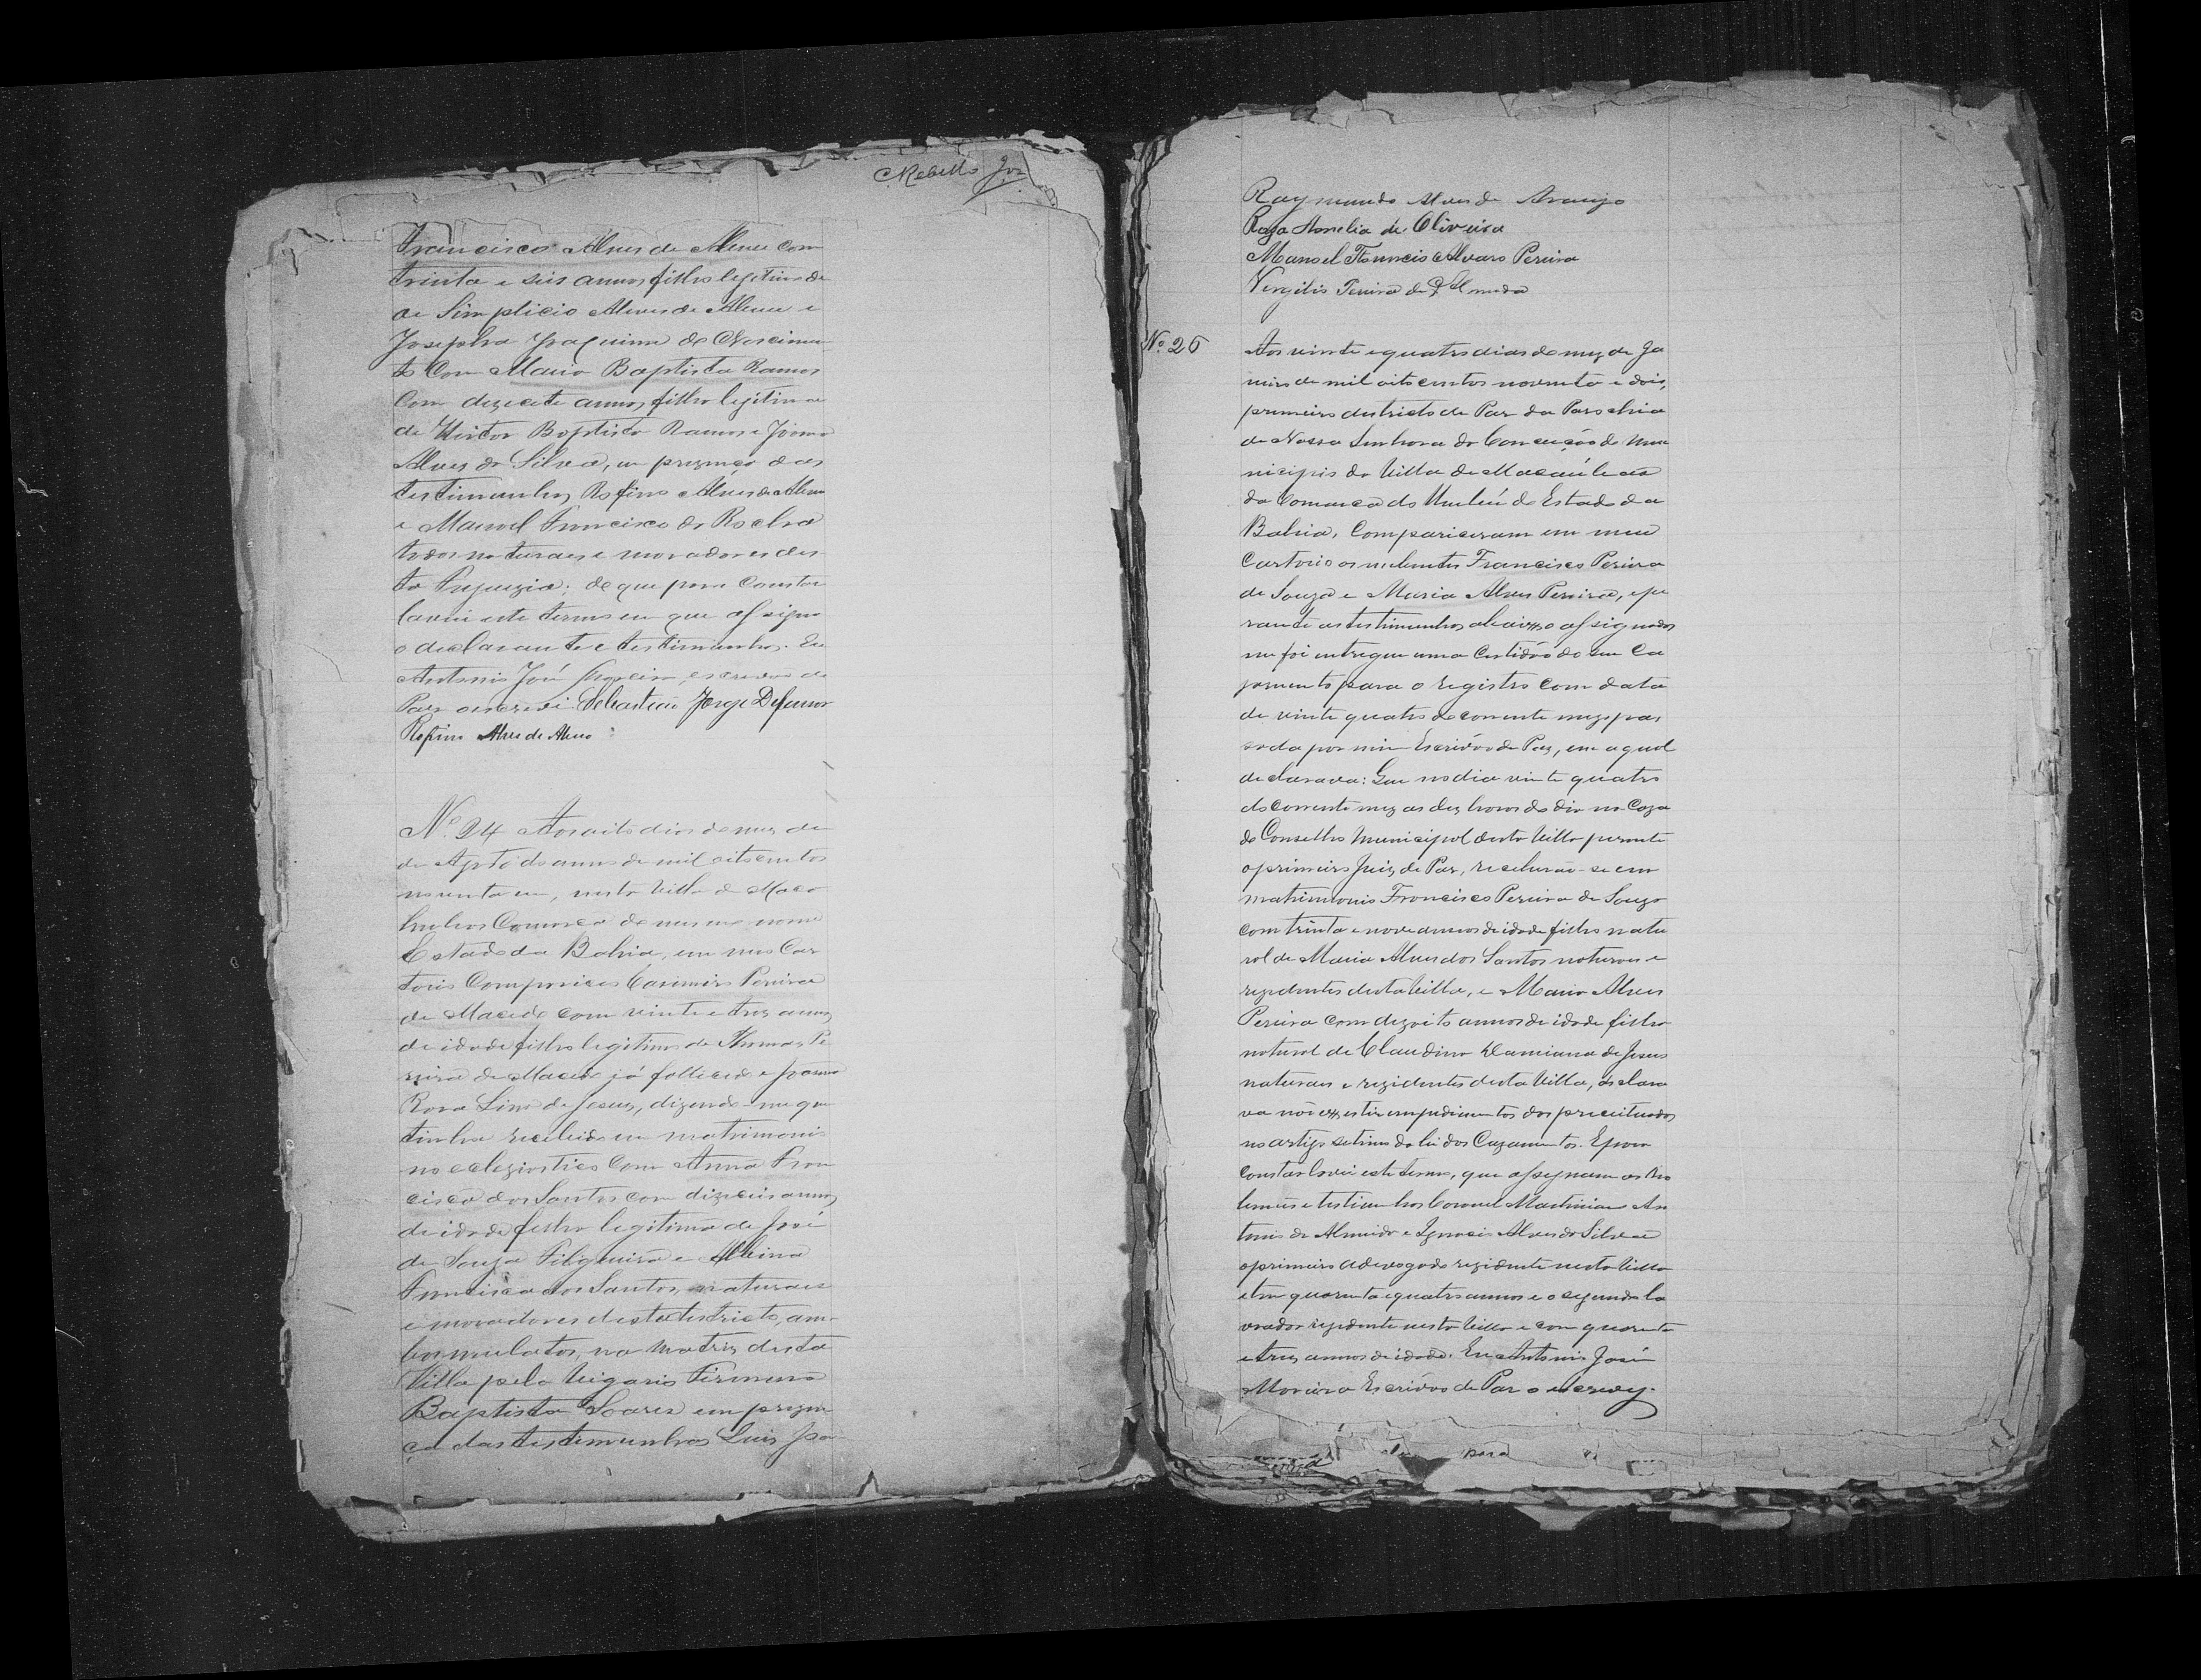 Rebello Jor
Francisco Alves de Abreu com
trinta e seis annos filho legitimo de
de Simplicio Alves de Abreu e
Josepha Joaquina do Nascimen
to com Maria Baptista Ramos
com dezecete annos filha legitima
de Victor Baptista Ramos e Joanna
Alves da Silva, em prezença das
testimunhas Rofino Alves de Abreu
e Manoel Francisco da Rocha
todos naturaes e moradores des
ta Freguezia; de que para constar
lavrei este termo em que assigna
o declarante e testimunhas. Eu
Antonio José escrivão de
Paz o escrevi. Sebastião Jorge Defensor
Rofino Alves de Abreu
Nº 24 Aos oito dias do mez de
de Agosto do anno de mil oitocentos
noventa um, nesta Villa de Maca
hubas Comarca do mesmo nome
Estado da Bahia, em meu Car
torio compareceo Casimiro Pereira
de Macedo com vinte e trez annos
de idade filho legitimo de Thomaz Pe
reira de Macedo já fallecido e Joanna
Rosa Lima de Jesus, dizendo-me que
tinha recebido em matrimonio
no ecleziastico com Anna Fran
cisca dos Santos com dizeceis annos
de idade filha legitima de José
de Souza Filgueira e Albina
Francisca dos Santos, naturaes
e moradores deste destricto, am-
bos mulatos, na Matriz desta
Villa pelo Vigario Firmino
Baptista Soares em prezen
ça das testemunhas Luis Joa-
Raymundo Alves de Araujo
Roza Amelia de Oliveira
Manoel Florencio Alvaro Pereira
Vergilio Pereira de Almeida
Nº 25
Aos vinte e quatro dias do mez de Ja
neiro de mil oito centos noventa e dois,
primeiro destricto de Paz da Parochia
de Nossa Senhora da Conceição do Mu
nicipio da Villa de Macaúbas
da Comarca do Urubú do Estado da
Bahia, compareceram em meu
Cartorio os nubentes Francisco Pereira
de Souza e Maria Alves Pereira, e pe
rante as testimunhas abaixo assignados
me foi entregue uma Certidão do seu Ca
zamento para o registro com data
de vinte quatro do corrente mez, pas
sada por mim Escrivão de Paz, em a qual
declarava: Que no dia vinte quatro
do corrente mez as dez horas do dia na Caza
do Conselho Municipal desta Villa perante
o primeiro Juiz de Paz, receberão-se em
matrimonio Francisco Pereira de Souza
com trinta e nove annos de idade filho natu
ral de Maria Alves dos Santos naturaes e
rezidentes desta Villa, e Maria Alves
Pereira com dezoito annos de idade filha
natural de Claudina Damiana de Jesus
naturaes e rezidentes desta Villa, declara
va não existir empedimentos dos preceituados
no artigo setimo da lei dos Cazamentos. E para
constar lavrei este termo, que assignam os nu
bentes e testimunhas Coronel Martiniano An
tonio de Almeida e Ignacio Alves da Silva
o primeiro advogado rezidente nesta Villa
e tem quarenta e quatro annos e o segundo la
vrador rezidente nesta Villa e com quarenta
e trez annos de idade. Eu Antonio José
Moreira Escrivão de Paz o escrevy.
para